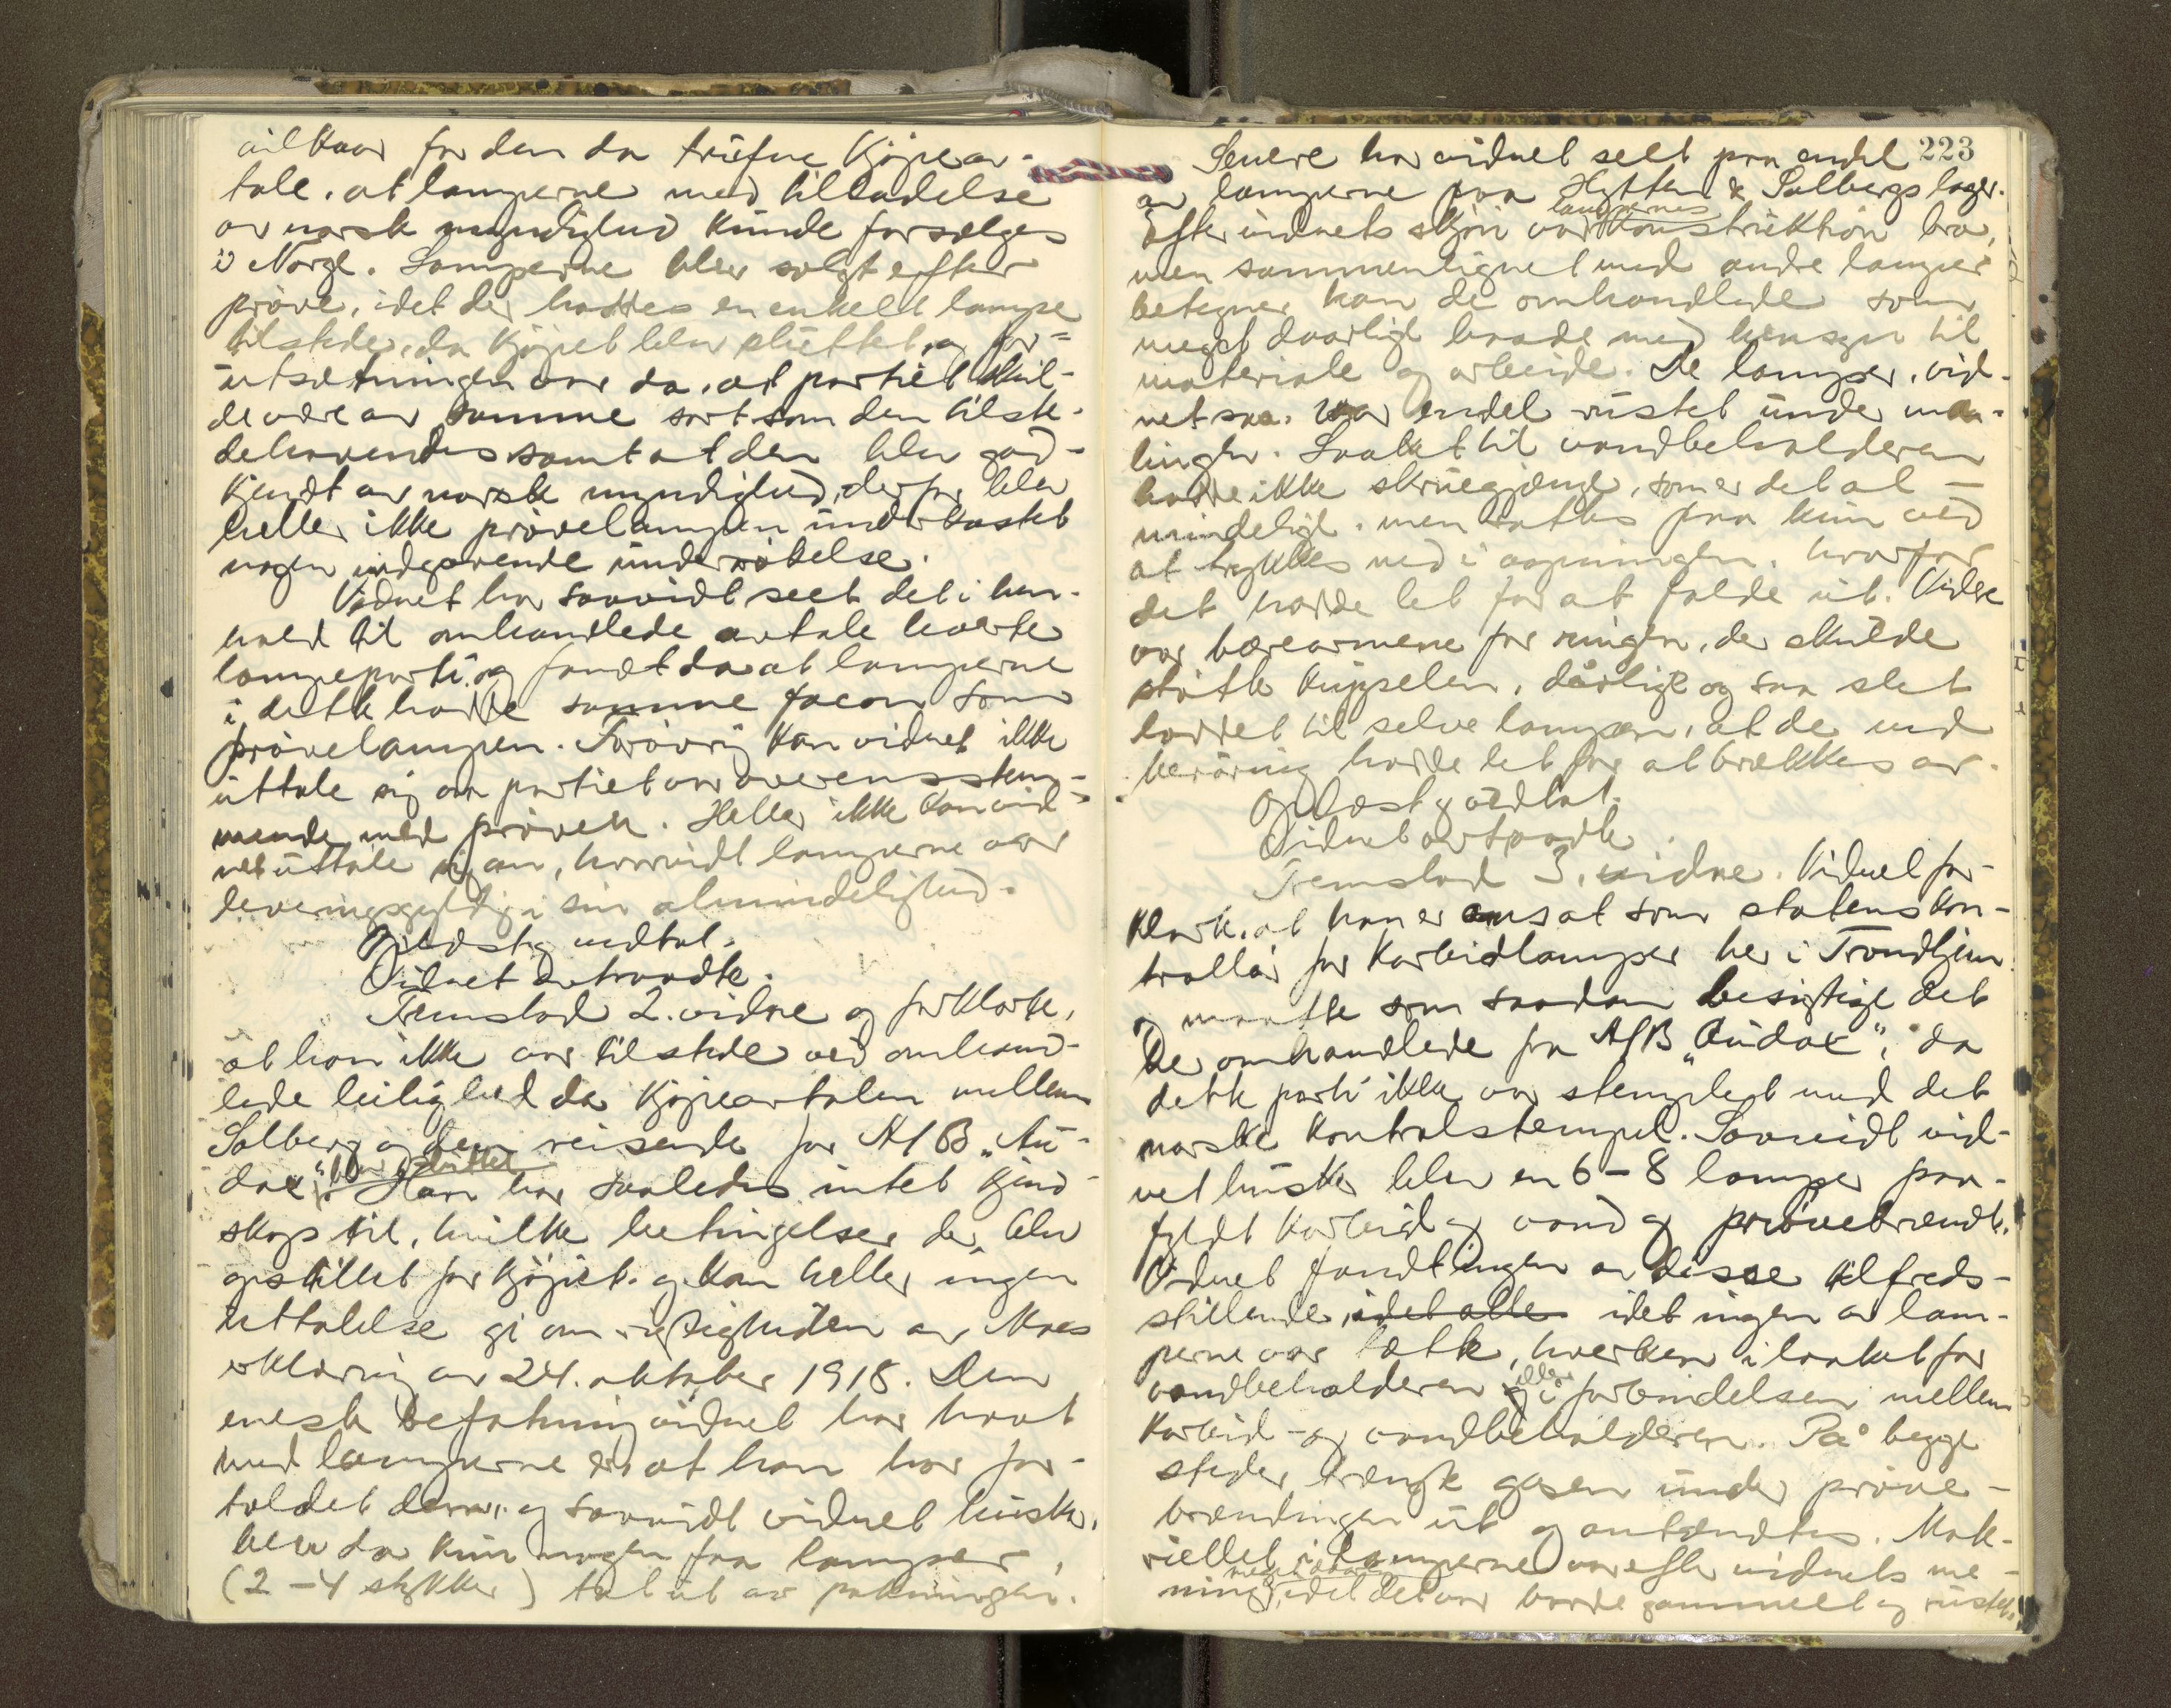 vilkaar for den da trufne kjøpeav-
tale, at lamperne med tilladelse
av norsk myndighed kunde forsælges
i Norge. Lamperne blev solgt efter
prøve, idet der hadtes en enkelt lampe
tilstede, da kjøpet blev sluttet, og for-
utsætningen var da, at partiet skul-
de være av samme sort som den tilste-
dehavendes samt at den blev god-
kjendt av norsk myndighed, derfor blev
heller ikke prøvelampen underkastet
nogen indgaaende undersøkelse.
Vidnet har saavidt seet det i hen-
hold til omhandlede avtale leverte
lampeparti, og fandt da at lamperne
i dette hadde samme facon som
prøvelampen. Forøvrig kan vidnet ikke
uttale sig om partiet var overensstem-
mende med prøven. Heller ikke kan vid-
net uttale sig om, hvorvidt lamperne var
leveringsgyldig i sin almindelighed.
Oplæst og vedtat.
Vidnet avtraadte.
Fremstod 2. vidne og forklarte,
at han ikke var tilstede ved omhand-
lede leilighed da kjøpeavtalen mellem
Solberg og den reisende for A/B "Au-
dax" blev sluttet. Han har saaledes intet kjend-
skap til, hvilke betingelser der blev
opstillet for kjøpet og kan heller ingen
uttalelse gi om rigtigheden av Moes
erklæring av 24. oktober 1918. Den
eneste befatning vidnet har havt
med lamperne er at han har for-
toldet dem, og saavidt vidnet husker,
blev da kun nogen faa lamper,
(2-4 stykker) tat ut av pakningen.
223
Senere har vidnet seet paa endel
av lamperne paa Hytten & Solbergs lager.
Efter vidnets skjøn var lampernes konstruktion bra,
men sammenlignet med andre lamper
betegner han de omhandlede som
meget daarlige baade med hensyn til
materiale og arbeide. De lamper, vid-
net saa, var endel rustet under ma-
lingen. Laaket til vandbeholderen
hadde ikke skruegjænge, som er det al-
mindelige, men sattes paa kun ved
at trykkes ned i aapningen, hvorfor
det hadde let for at falde ut. Videre
var bærearmene for ringen, der skulde
støtte kuppelen, dårlige og saa slet
loddet til selve lampen, at de ved
berøring hadde let for at brækkes av.
Oplæst og vedtat.
Vidnet avtraadte.
Fremstod 3. vidne. Vidnet for-
klarte, at han er ansat som statens kon-
trollør for karbidlamper her i Trondhjem
og maatte som saadan besigtige det
her omhandlede fra A/B "Audax", da
dette parti ikke var stemplet med det
norske kontrolstempel. Saavidt vid-
net husker blev en 6-8 lamper paa-
fyldt karbid og vand og prøvebrændt.
Vidnet fandt ingen av disse tilfreds-
stillende, idet alle idet ingen av lam-
perne var tætte, hverken i laaket for
vandbeholderen og eller i forbindelsen mellem
karbid- og vandbeholderen. På begge
steder trængte gasen under prøve-
brændingen ut og antændtes. Mate-
riellet i lamperne var efter vidnets me-
ning, idet det var baade gammelt og rustet,